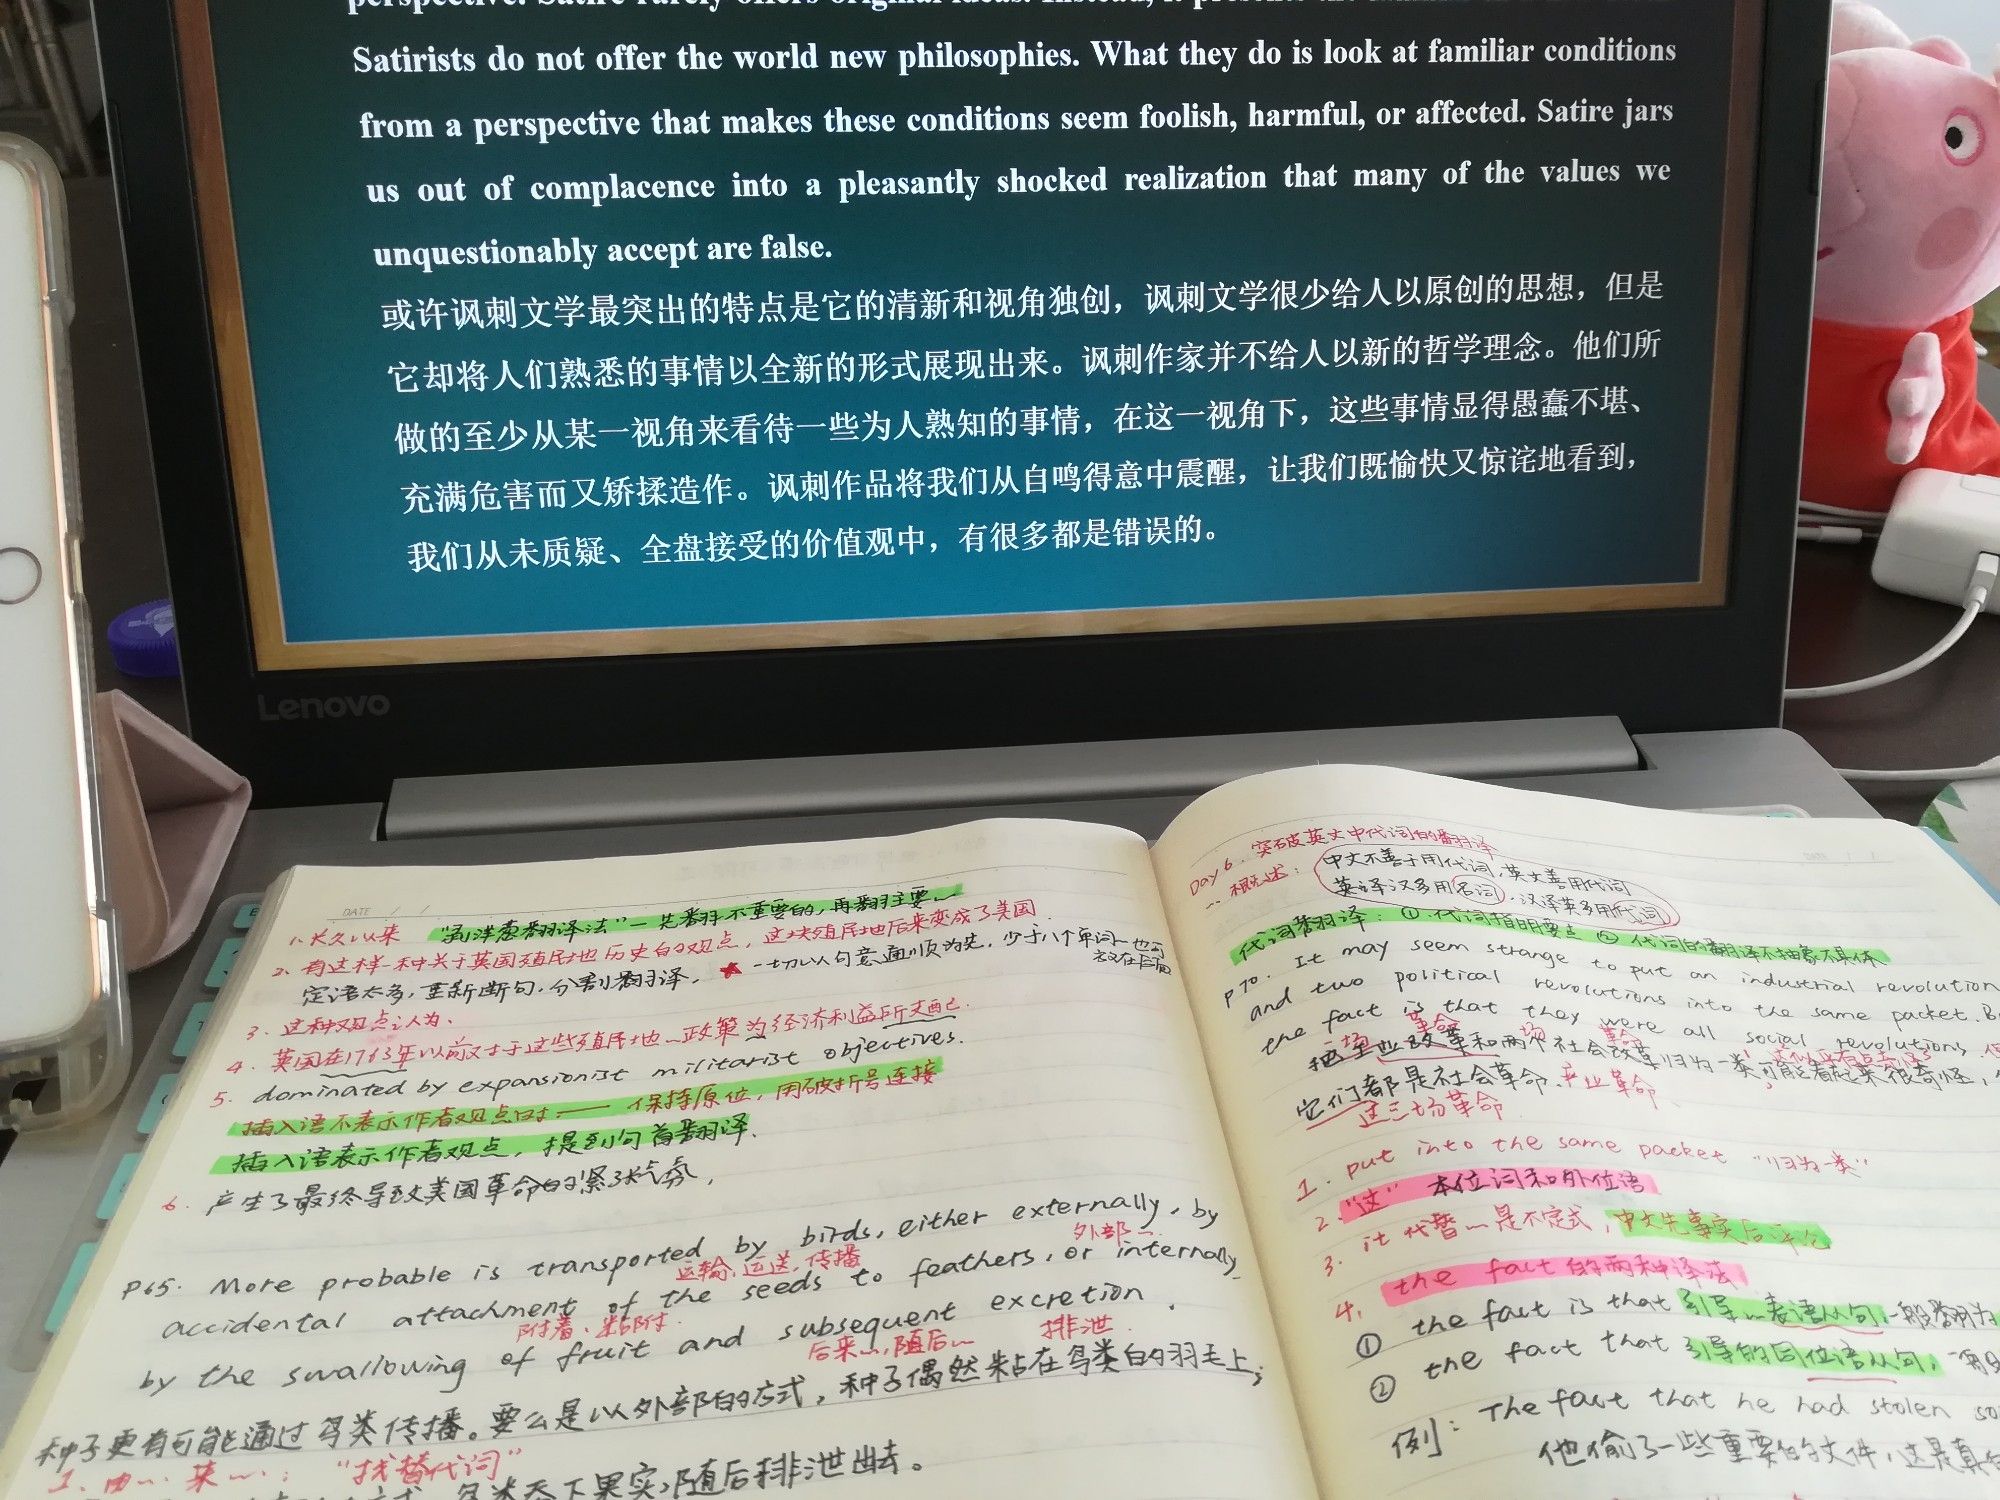 perspective. Satire rarely offers original ideas. Instead, it presents the familiar
Satirists do not offer the world new philosophies. What they do is look at familiar conditions
from a perspective that makes these conditions seem foolish, harmful, or affected. Satire jars
us out of complacence into a pleasantly shocked realization that many of the values we
unquestionably accept are false.
或许讽刺文学最突出的特点是它的清新和视角独创，讽刺文学很少给人以原创的思想，但是
它却将人们熟悉的事情以全新的形式展现出来。讽刺作家并不给人以新的哲学理念。他们所
做的至少从某一视角来看待一些为人熟知的事情，在这一视角下，这些事情显得愚蠢不堪、
充满危害而又矫揉造作。讽刺作品将我们从自鸣得意中震醒，让我们既愉快又惊诧地看到，
我们从未质疑、全盘接受的价值观中，有很多都是错误的。
Lenovo
DATE / /
1. 长久以来 "剥洋葱翻译法"—先翻不重要的，再翻主要
2. 有这样一种关于英国殖民地历史的观点，这块殖民地后来变成了美国
定语太多，重新断句，分割翻译，★一切以句意通顺为先，少于八个单词一也可
放在后面
3. 这种观点认为、
4. 英国在1763年以前对于这些殖民地…政策为经济利益所支配.
5. dominated by expansionist militarist objectives.
插入语不表示作者观点时—— 保持原位，用破折号连接
插入语表示作者观点，提到句首翻译.
6. 产生了最终导致美国革命的紧张气氛，
P65. More probable is transported by birds, either externally, by
运输、运送、传播 外部…
accidental attachment of the seeds to feathers, or internally
附着、粘附.
by the swallowing of fruit and subsequent excretion.
后来…, 随后… 排泄
种子更有可能通过鸟类传播。要么是以外部的方式，种子偶然粘在鸟类的羽毛上；
1. 由…. 某….: "找替代词"
鸟类吞下果实，随后排泄出去。
Day 6. 突破英文中代词的翻译
一. 概述: 中文不善于用代词，英文善用代词
英译汉多用名词，汉译英多用代词
代词翻译: ① 代词指明要点 ② 代词的翻译不抽象不具体
P70. It may seem strange to put an industrial revolution
and two political revolutions into the same packet. B
the fact is that they were all social revolutions
一场 革命 场 革命
把工业改革和两个社会改革归为一类可能看起来很奇怪，
它们都是社会革命. 产业革命
这三场革命
1. put into the same packet "归为一类"
2. "这" 本位词和外位语
3. it 代替…是不定式，中文先事实后评论
4. the fact 的两种译法
① the fact is that 引导…表语从句，一般翻为
② the fact that 引导的同位语从句，
例: The fact that he had stolen so
他偷了一些重要的文件，这是真